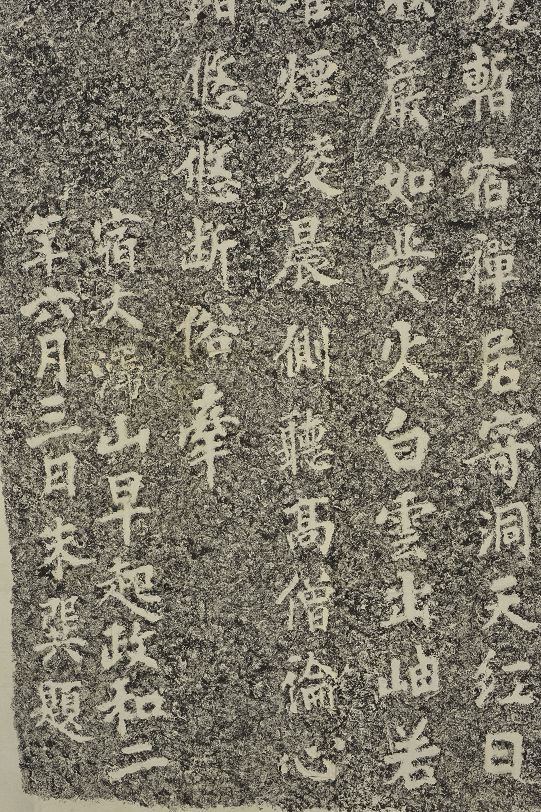 暫宿禪居寄洞天紅日
巖如發火白雲出岫若
煙凌晨側聽髙僧論心
悠悠断俗牽
宿大澤山早起政和二
年六月三日宋巽題